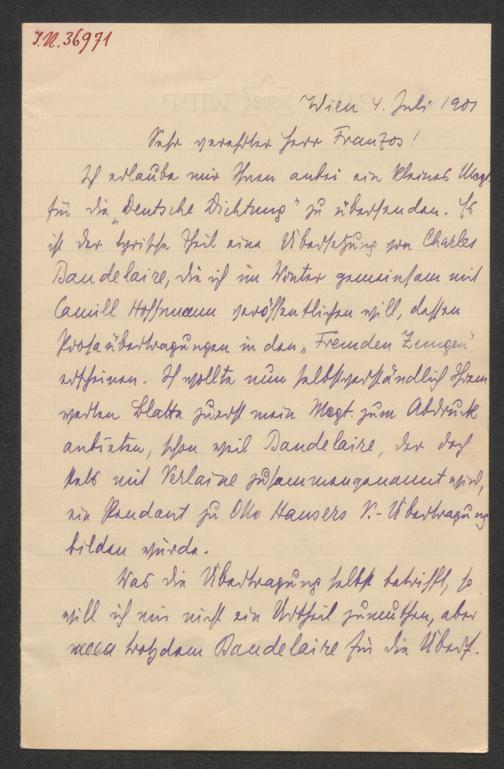 I.N. 36971
Wien 4. Juli 1901
Sehr verehrter Herr Franzos!
Ich erlaube mir Ihnen anbei ein kleines Msgt
für die „Deutsche Dichtung" zu übersenden. Es
ist der lyrische Theil einer Übersetzung von Charles
Baudelaire, die ich im Winter gemeinsam mit
Camill Hoffmann veröffentlichen will, dessen
Prosaübertragungen in den „Fremden Zungen"
erscheinen. Ich wollte nun selbstverständlich Ihrem
werten Blatte zuerst mein Msgt. zum Abdruck
anbieten, schon weil Baudelaire, der doch
stets mit Verlaine zusammengenannt wird,
ein Pendant zu Otto Hausers V.-Übertragung
bilden würde.
Was die Übertragung selbst betrifft, so
will ich mir nicht ein Urtheil zumuthen, aber
trotzdem Baudelaire für die Übers.